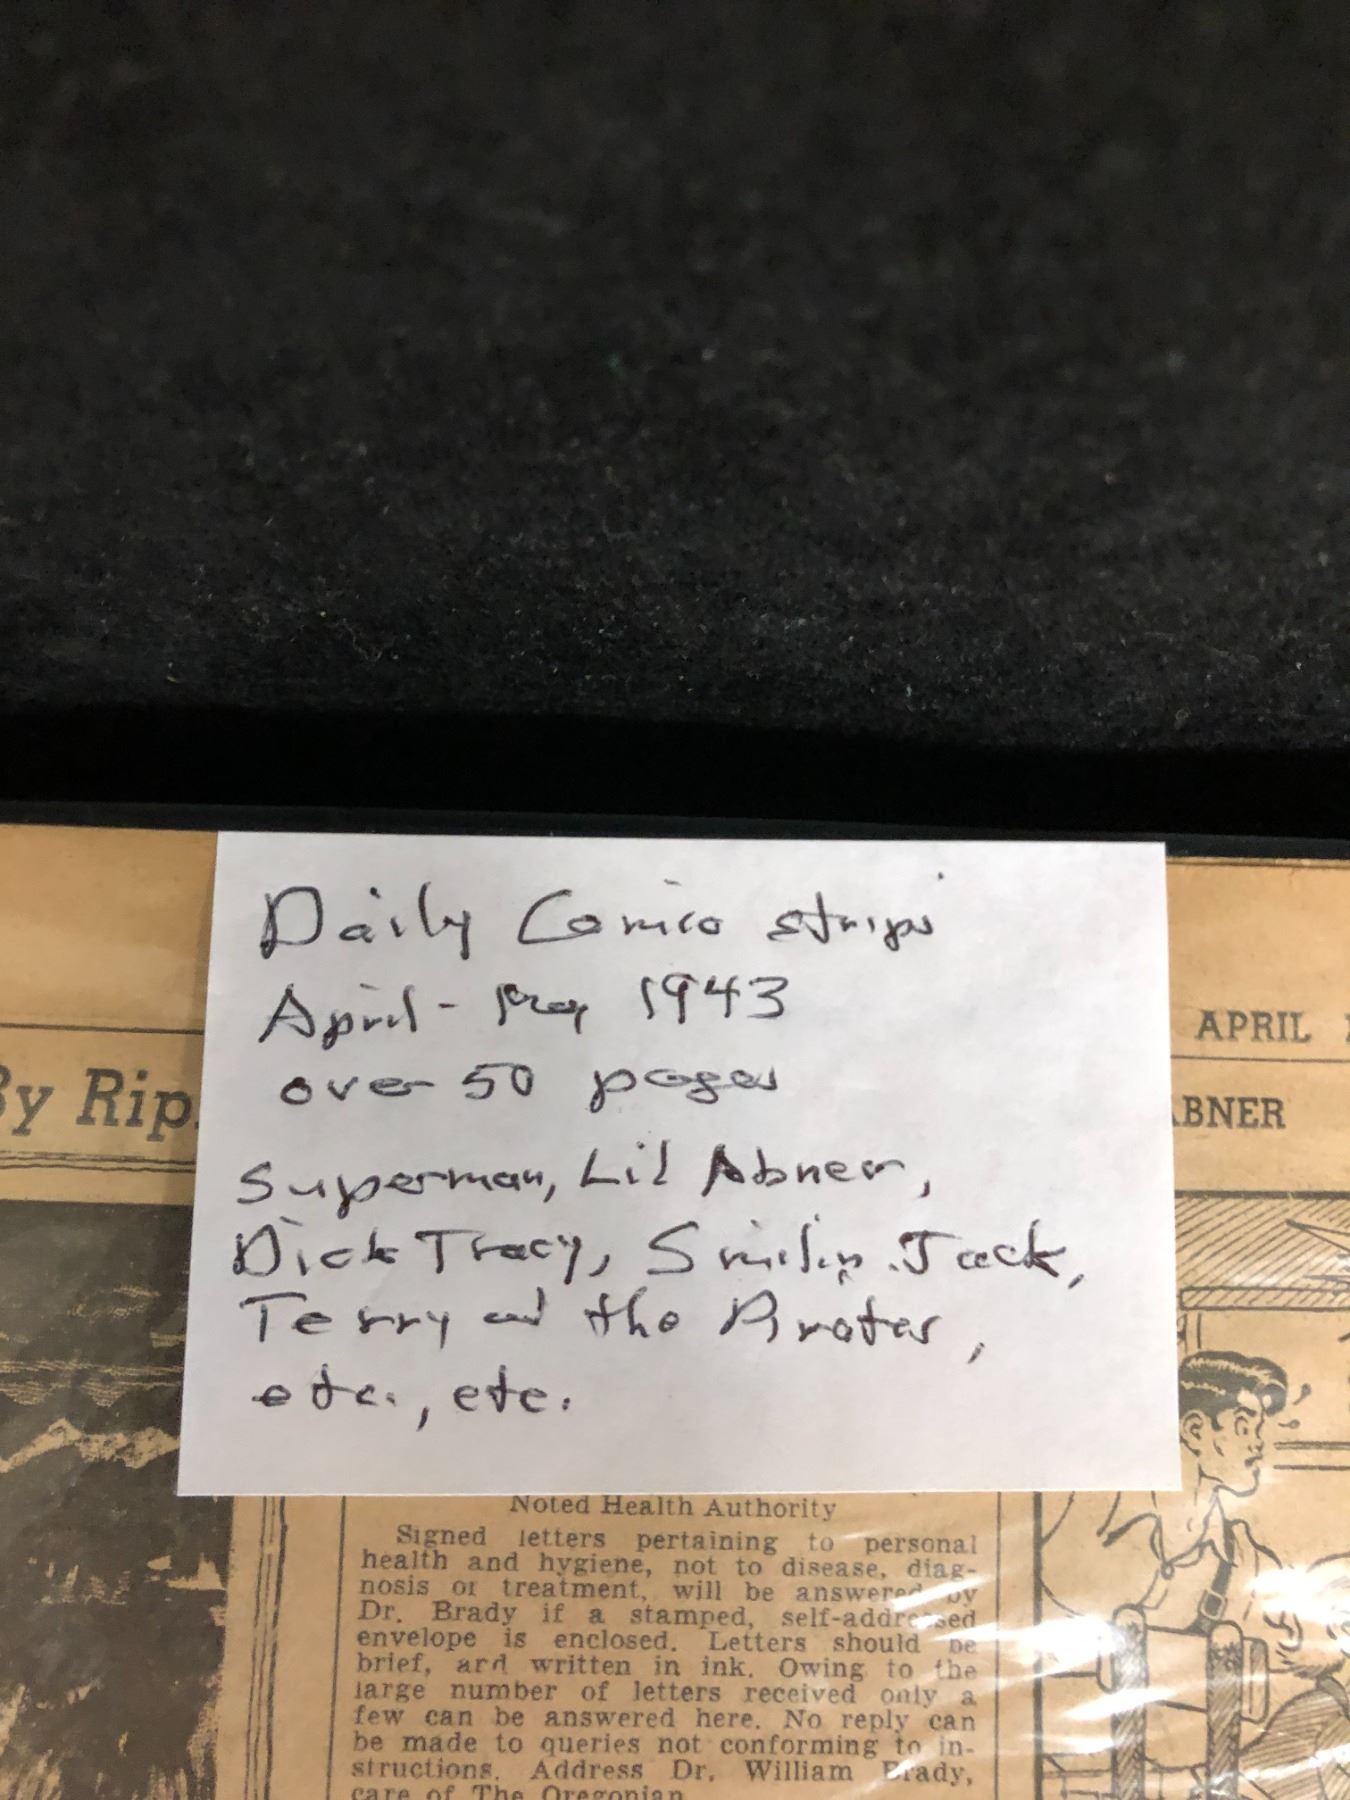 Daily Comics strips
April - May 1943
over 50 pages
Superman, Lil Abner,
Dick Tracy, Smilin Jack,
Terry and the Pirates,
etc., etc.
By Rip
APRIL
ABNER
Noted Health Authority
Signed letters pertaining to personal
health and hygiene, not to disease, diag-
nosis or treatment, will be answered by
Dr. Brady if a stamped, self-addressed
envelope is enclosed. Letters should be
brief, and written in ink. Owing to the
large number of letters received only a
few can be answered here. No reply can
be made to queries not conforming to in-
structions. Address Dr. William Brady,
care of The Oregonian